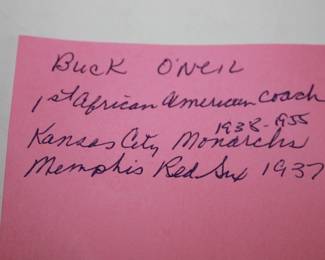 Buck O'Neil
1st African American Coach
1938-1955
Kansas City Monarchs
Memphis Red Sux 1937